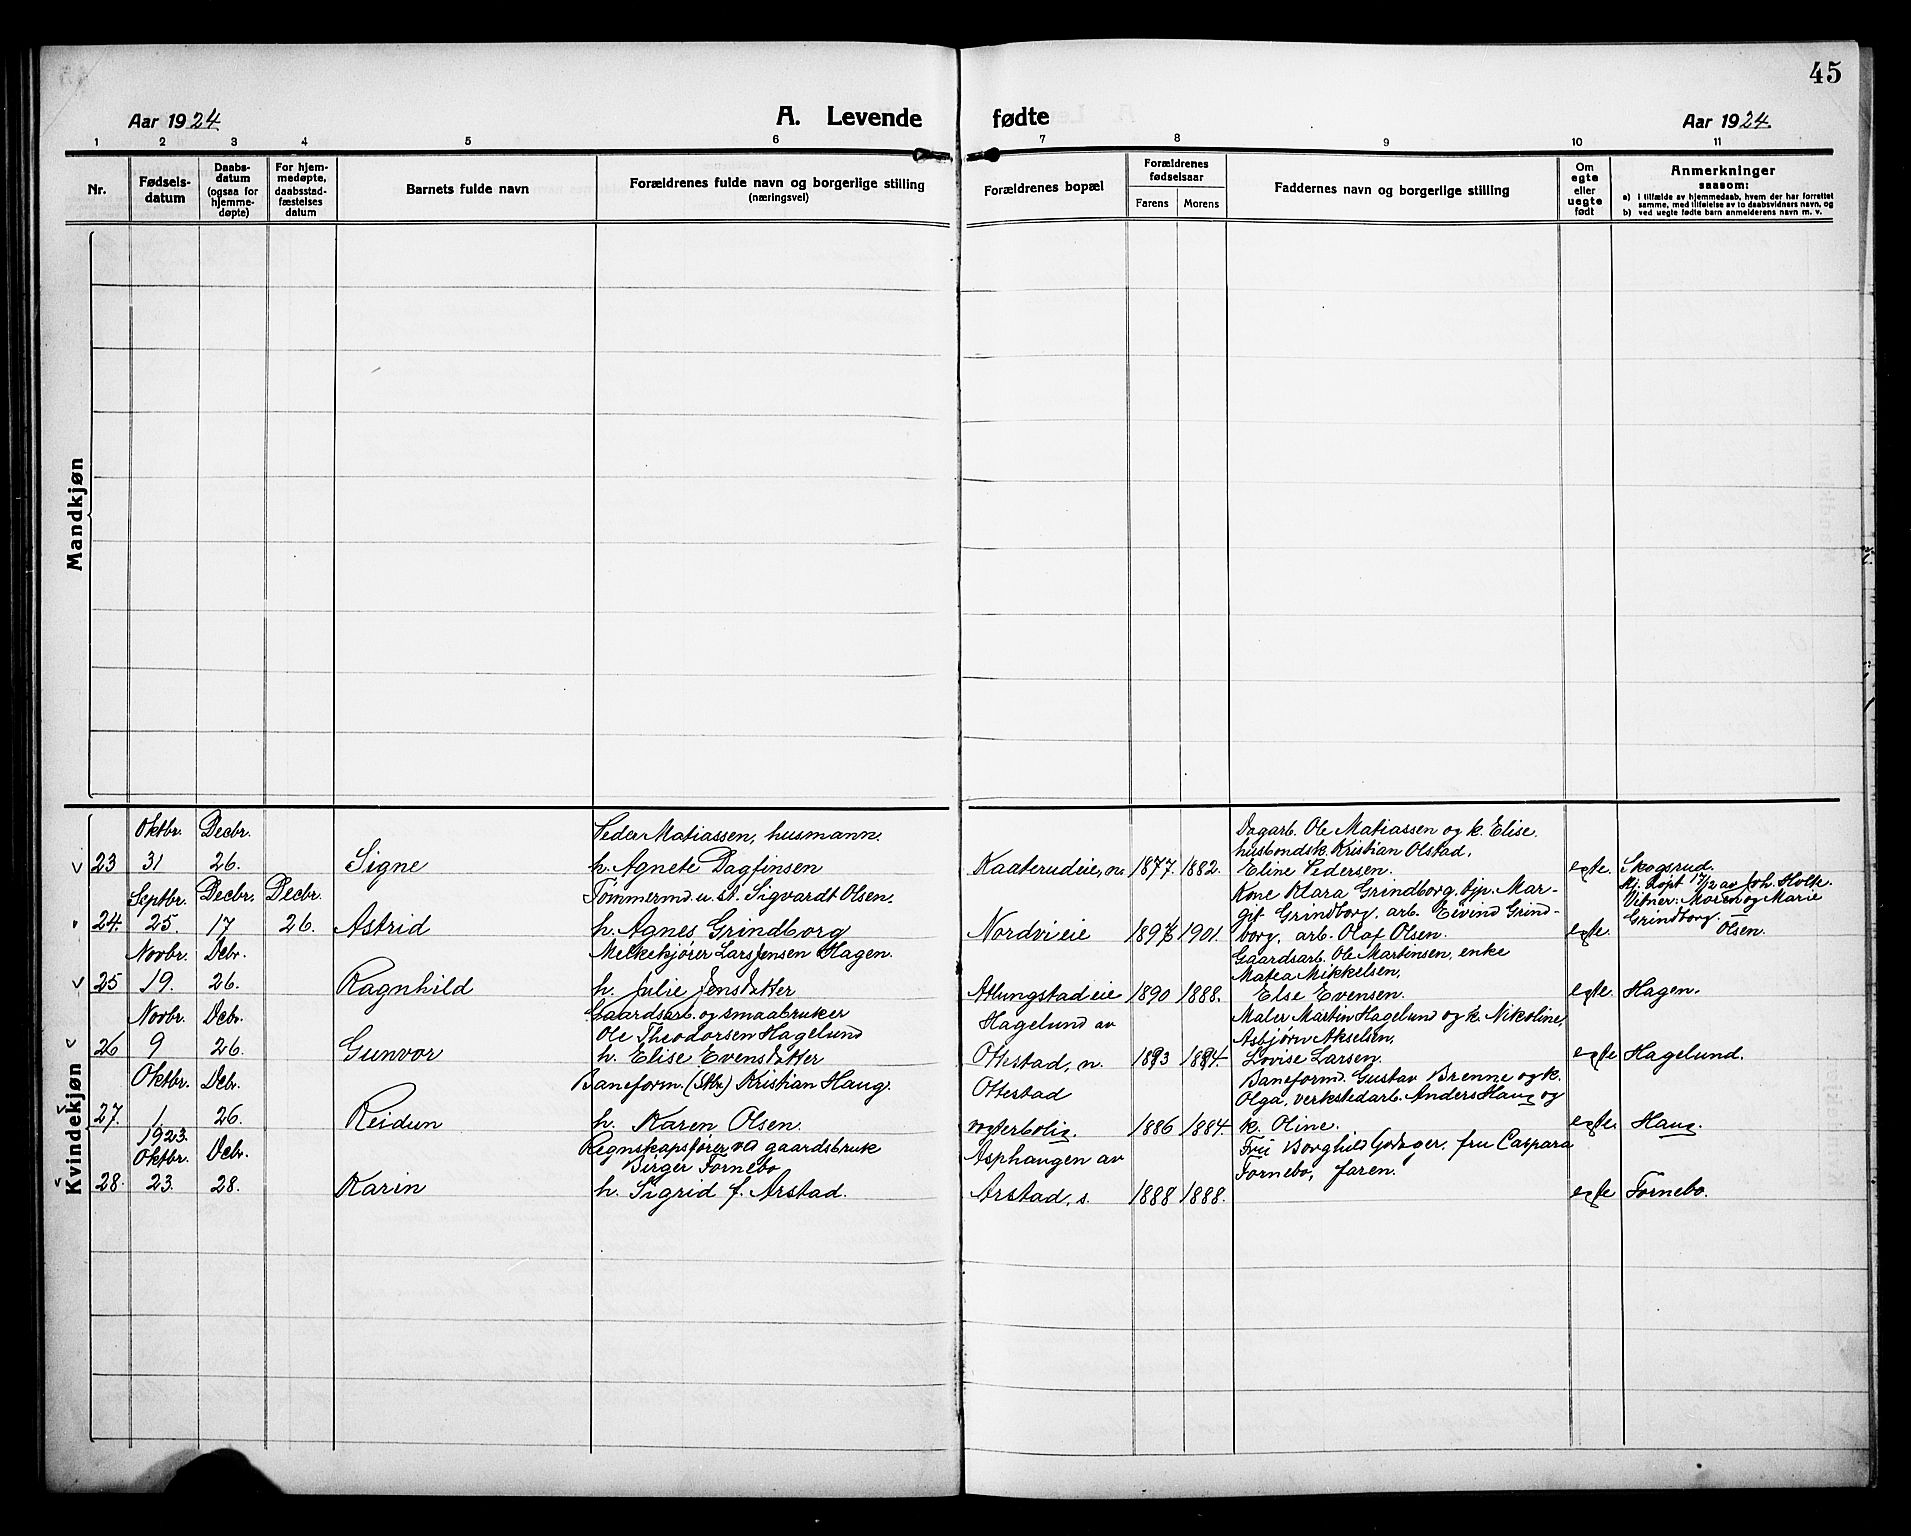 45
Aar 1924
A. Levende fødte
Aar 1924.
1 2 3 4 5 6 7 8 9 10 11
Nr.
Fødsels-
datum
Daabs-
datum
(ogsaa for
hjemme-
døpte)
For hjem-
medøpte,
daabsstad-
fæstelses
datum
Barnets fulde navn
Forældrenes fulde navn og borgerlige stilling
(næringsvei)
Forældrenes bopæl
Forældrenes
fødselsaar
Farens Morens
Faddernes navn og borgerlige stilling
Om
egte
eller
uegte
født
Anmerkninger
saasom:
a) i tilfælde av hjemmedaab, hvem der har forrettet
samme, med tilføielse av to daabsvidners navn, og
b) ved uegte fødte barn anmelderens navn m. v.
Mandkjøn
Kvindekjøn
23
Oktbr.
31
Decbr.
26.
Signe
Peder Matiassen, husmann.
h. Agnete Dagfinsen
Kaaterudeie, n.
1877. 1882.
Dagarb. Ole Matiassen og k. Elise.
husbondsk. Kristian Olstad,
Eline Pedersen.
egte.
Skogsrud.
24.
Septbr.
25
Decbr.
17
Decbr.
26.
Astrid
Tømmermd u. st. Sigvardt Olsen.
h. Agnes Grindborg
Nordvieie
1901.
Kone Klara Grindborg, pp. Mar-
git Grindborg, arb. Eivind Grind-
borg, arb. Olaf Olsen.
egte.
Hj. døpt 17/12 av Joh. Holte.
Vitner: Maren og Marie
Grindborg.
Olsen.
25
Novbr.
19.
Debr.
26.
Ragnhild
Melkekjører Lars Jensen Hagen.
h. Julie Jensdatter
Atlungstadeie
1890 1888.
Gaardsarb. Ole Martinsen, enke
Matea Mikkelsen,
Else Evensen.
egte.
Hagen.
26
Novbr.
9
Debr.
26.
Gunvor
Gaardsarb. og smaabruker
Ole Theodorsen Hagelund
h. Elise Evensdatter
Hagelund av
Ottestad, n.
1893 1894.
Maler Martin Hagelund og k. Nikoline,
Asbjørn Akselsen,
Lovise Larsen.
egte
Hagelund.
27.
Oktbr.
1
Debr.
26.
Reidun
Baneform. (Stbr) Kristian Haug.
h. Karen Olsen.
Ottestad
vogterbolig.
1886 1884.
Baneformd. Gustav Brenne og k.
Olga, verkstedarb. Anders Haug og
k. Oline.
egte.
Haug.
28.
1923.
Oktbr.
23.
Debr.
28.
Karin
Regnskapsfører ved gaardsbruk
Birger Fornebo
h. Sigrid f. Arstad.
Asphaugen av
Arstad, s.
1888 1888.
Fru Borghild Godager, fru Caspara
Fornebo, faren.
egte
Fornebo.